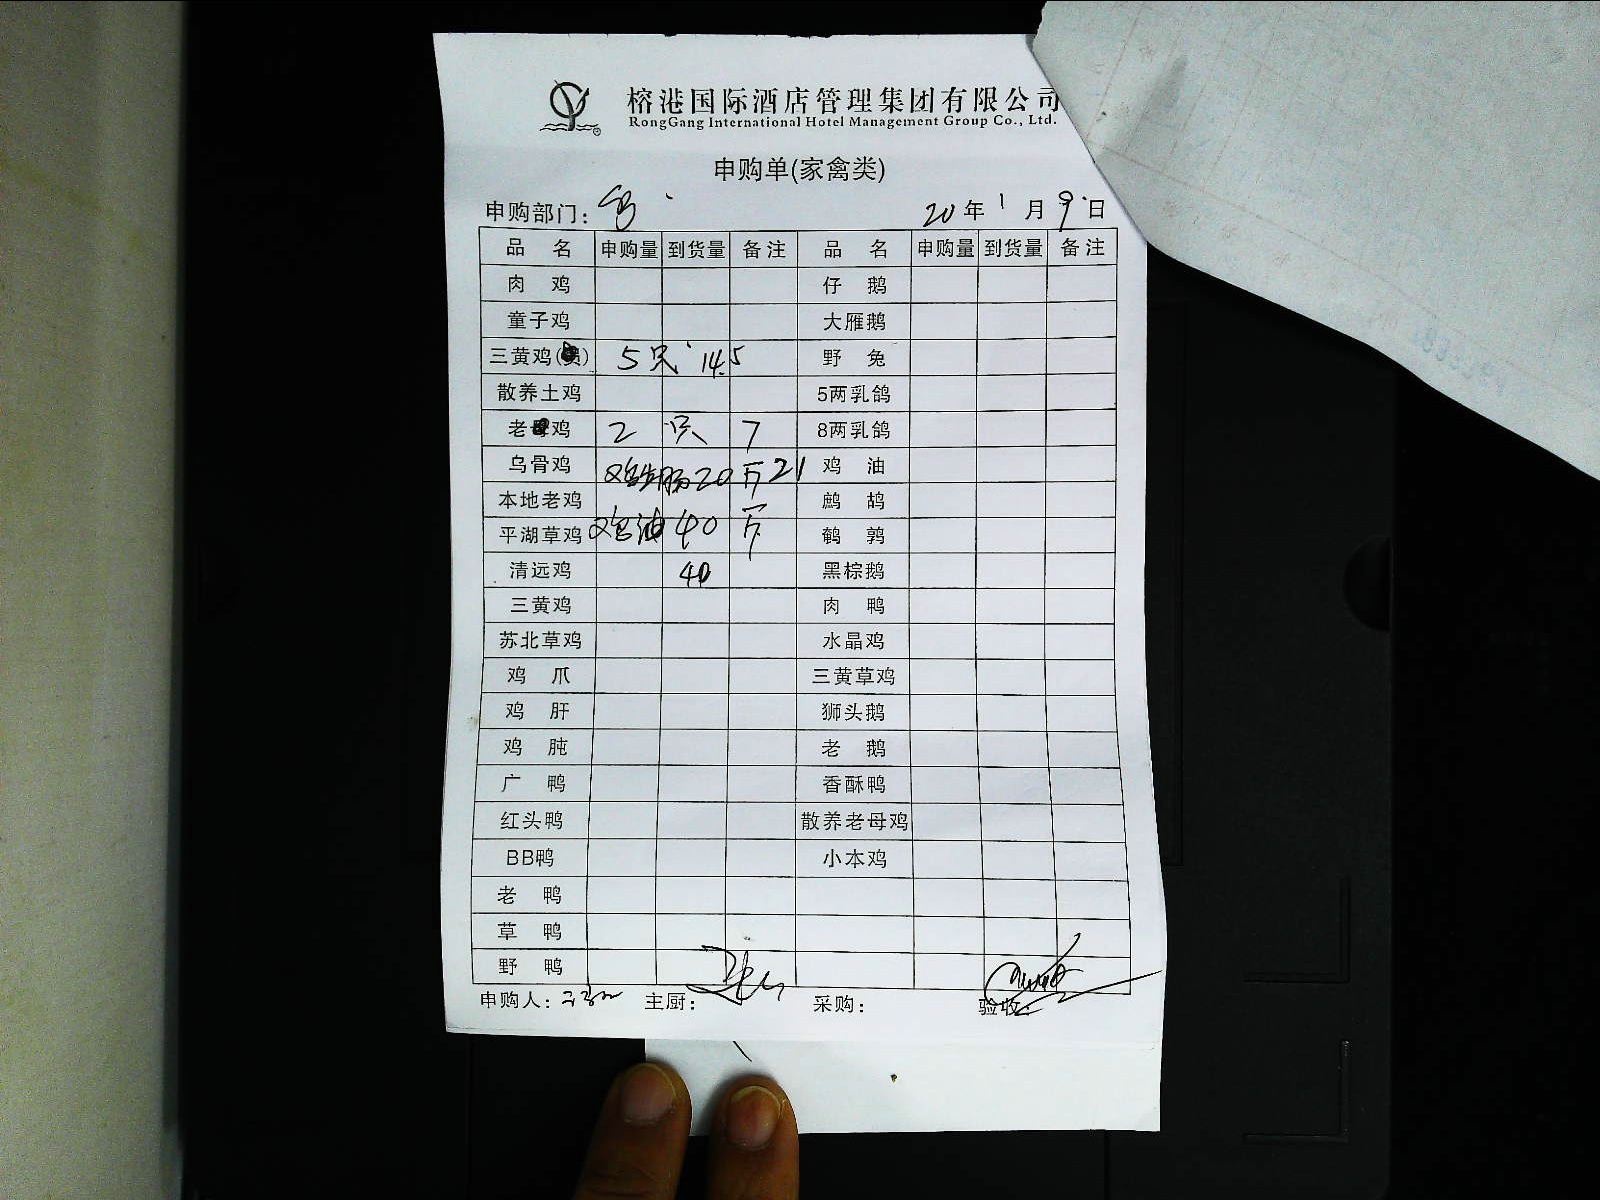 榕港国际酒店管理集团有限公司
RongGang International Hotel Management Group Co., Ltd.
申购单(家禽类)
申购部门:
20年1月9日
品名 申购量 到货量 备注 品名 申购量 到货量 备注
肉鸡 仔鹅
童子鸡 大雁鹅
三黄鸡() 5只 14.5 野兔
散养土鸡 5两乳鸽
老鸡 2只 7 8两乳鸽
乌骨鸡 20斤 21 鸡油
本地老鸡 鹧鸪
平湖草鸡 鸡油 40斤 鹌鹑
清远鸡 40 黑棕鹅
三黄鸡 肉鸭
苏北草鸡 水晶鸡
鸡爪 三黄草鸡
鸡肝 狮头鹅
鸡肫 老鹅
广鸭 香酥鸭
红头鸭 散养老母鸡
BB鸭 小本鸡
老鸭
草鸭
野鸭
申购人: 主厨: 采购: 验收: